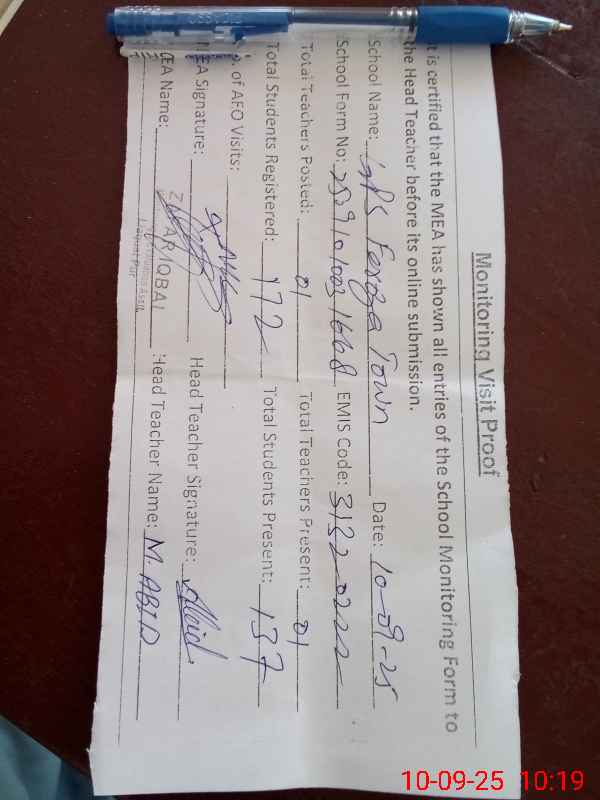 Monitoring Visit Proof
t is certified that the MEA has shown all entries of the School Monitoring Form to
the Head Teacher before its online submission.
School Name: GPS Feroza Town Date: 10-09-25
School Form No: EMIS Code: 31320222
Total Teachers Posted: 01 Total Teachers Present: 01
Total Students Registered: 172 Total Students Present: 137
of AFO Visits:
EA Signature: Head Teacher Signature: Abid
EA Name: IQBAL Head Teacher Name: M. ABID
Liaquat Pur
10-09-25 10:19